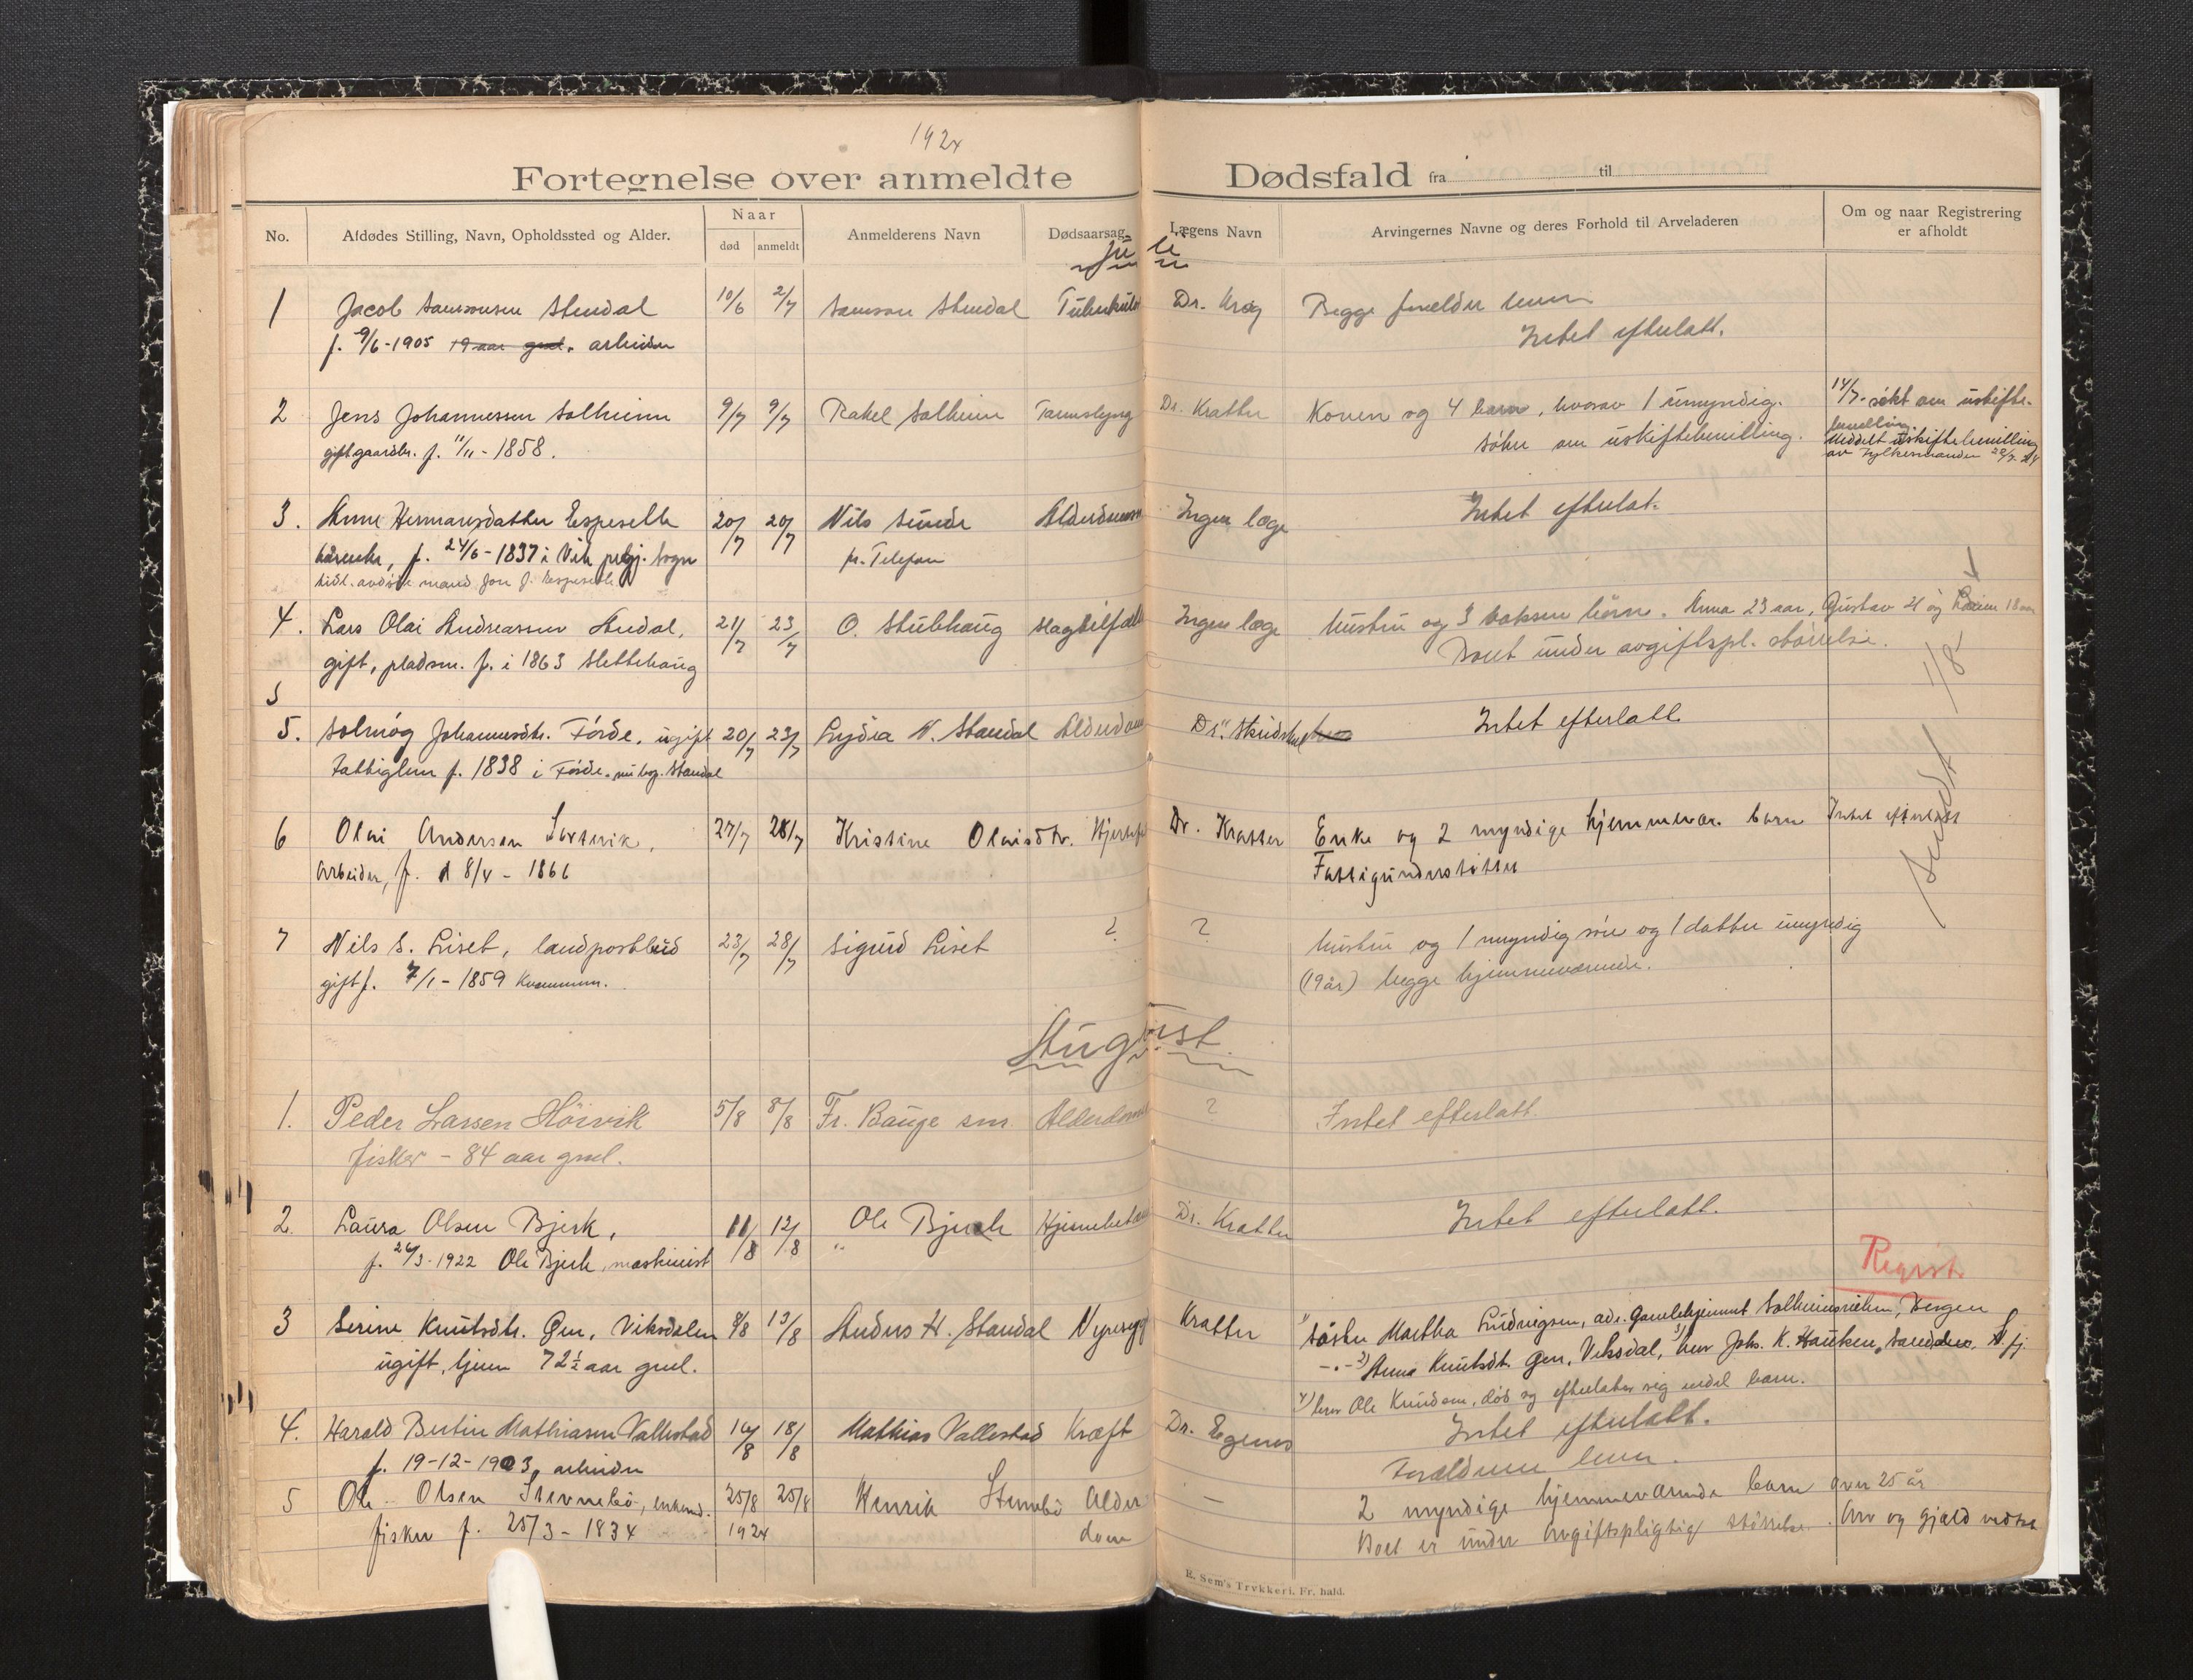 1924
Fortegnelse over anmeldte Dødsfald fra til
No. Afdødes Stilling, Navn, Opholdssted og Alder. Naar død anmeldt Anmelderens Navn Dødsaarsag Lægens Navn Arvingernes Navne og deres Forhold til Arveladeren Om og naar Registrering er afholdt
Juli
1 Jacob Samsonsen Stendal 10/6 2/7 Samson Stendal Tuberkulo Dr. Krag Begge forelder lever
f. 9/6-1905 19 aar gml. arbeider Intet efterlatt.
2 Jens Johannessen Solheim 9/7 9/7 Rakel Solheim Tarmslyng Dr. Kratter Konen og 4 barn, hvorav 1 umyndig. 14/7. søkt om uskifte-
gift gaardbr. f. 11/11-1858. søker om uskiftebevilling. bevilling.
Meddelt uskiftebevilling
av Fylkesmanden 28/7-24
3. Anne Hermansdatter Espeseth 20/7 20/7 Nils Sunde Alderdoms Ingen læge Intet efterlat.
kårenke, f. 24/6-1837 i Vik prgj. Sogn pr. Telefon
tidl. avdøde mand Jon J. Espeseth
4. Lars Olai Andreassen Stendal, 21/7 23/7 O. Stubhaug Slagtilfæld Ingen læge Hustru og 3 voksne børn. Anna 23 aar, Gustav 21 og 18 aar
gift, pladsm. f. i 1863 Slettehaug Boet under avgiftspl. størrelse. 1/8
5
5. Solmøg Johannesdtr. Førde, ugift 20/7 23/7 Lydia N. Standal Alderdom Dr. Intet efterlatt.
Fattiglem f. 1838 i Førde. nu bog. Standal
6 Olai Andersen 27/7 28/7 Kristine Olaisdtr. Hjertefe Dr. Kratter Enke og 2 myndige hjemmevær. barn Intet efterlatt
Arbeider, f. 8/4-1866 Fattigunderstøttet
7 Nils S. Liset, landpostbud 23/7 28/7 Sigurd Liset ? ? Hustru og 1 myndig søn og 1 datter umyndig
gift f. 7/1-1859 Kvammen. (19 år) begge hjemmeværende.
August.
1. Peder Larsen Høivik 5/8 8/8 Fr. Bauge sm. Alderdom ? Intet efterlatt
fisker - 84 aar gml.
2. Laura Olsen Bjerk, 11/8 12/8 Ole Bjerk Hjernebetæn Dr. Kratter Intet efterlatt.
f. 26/3-1922 Ole Bjerk, maskinist "
Registr.
3 Serine Knutsdtr. Øen, Viksdalen 8/8 13/8 Anders H. Standal Nyresyg Kratter 1) Søster Martha Ludvigsen, adr. Gamlehjemmet Solheimsviken, Bergen
ugift, tjener 72½ aar gml. -"- 2) Anna Knutsdt. Øen, Viksdal, 3) bror Johs. K. Hauken, Sanddøen, S. fj.
4) bror Ole Knudsen, død og efterlater sig endel barn.
4. Harald Bertin Mathiasen Vallestad 16/8 18/8 Mathias Vallestad Kræft Dr. Egenes Intet efterlatt.
f. 19-12-1903, arbeider Forældrene lever.
5 Ole Olsen Stevnebø, enkem. 25/8 25/8 Henrik Stevnebø Alder - 2 myndige hjemmeværende barn over 25 år
fisker f. 25/3-1834 1924 dom Boet er under avgiftspligtig størrelse. Arv og gjæld vedtat
E. Sem's Trykkeri, Fr. hald.